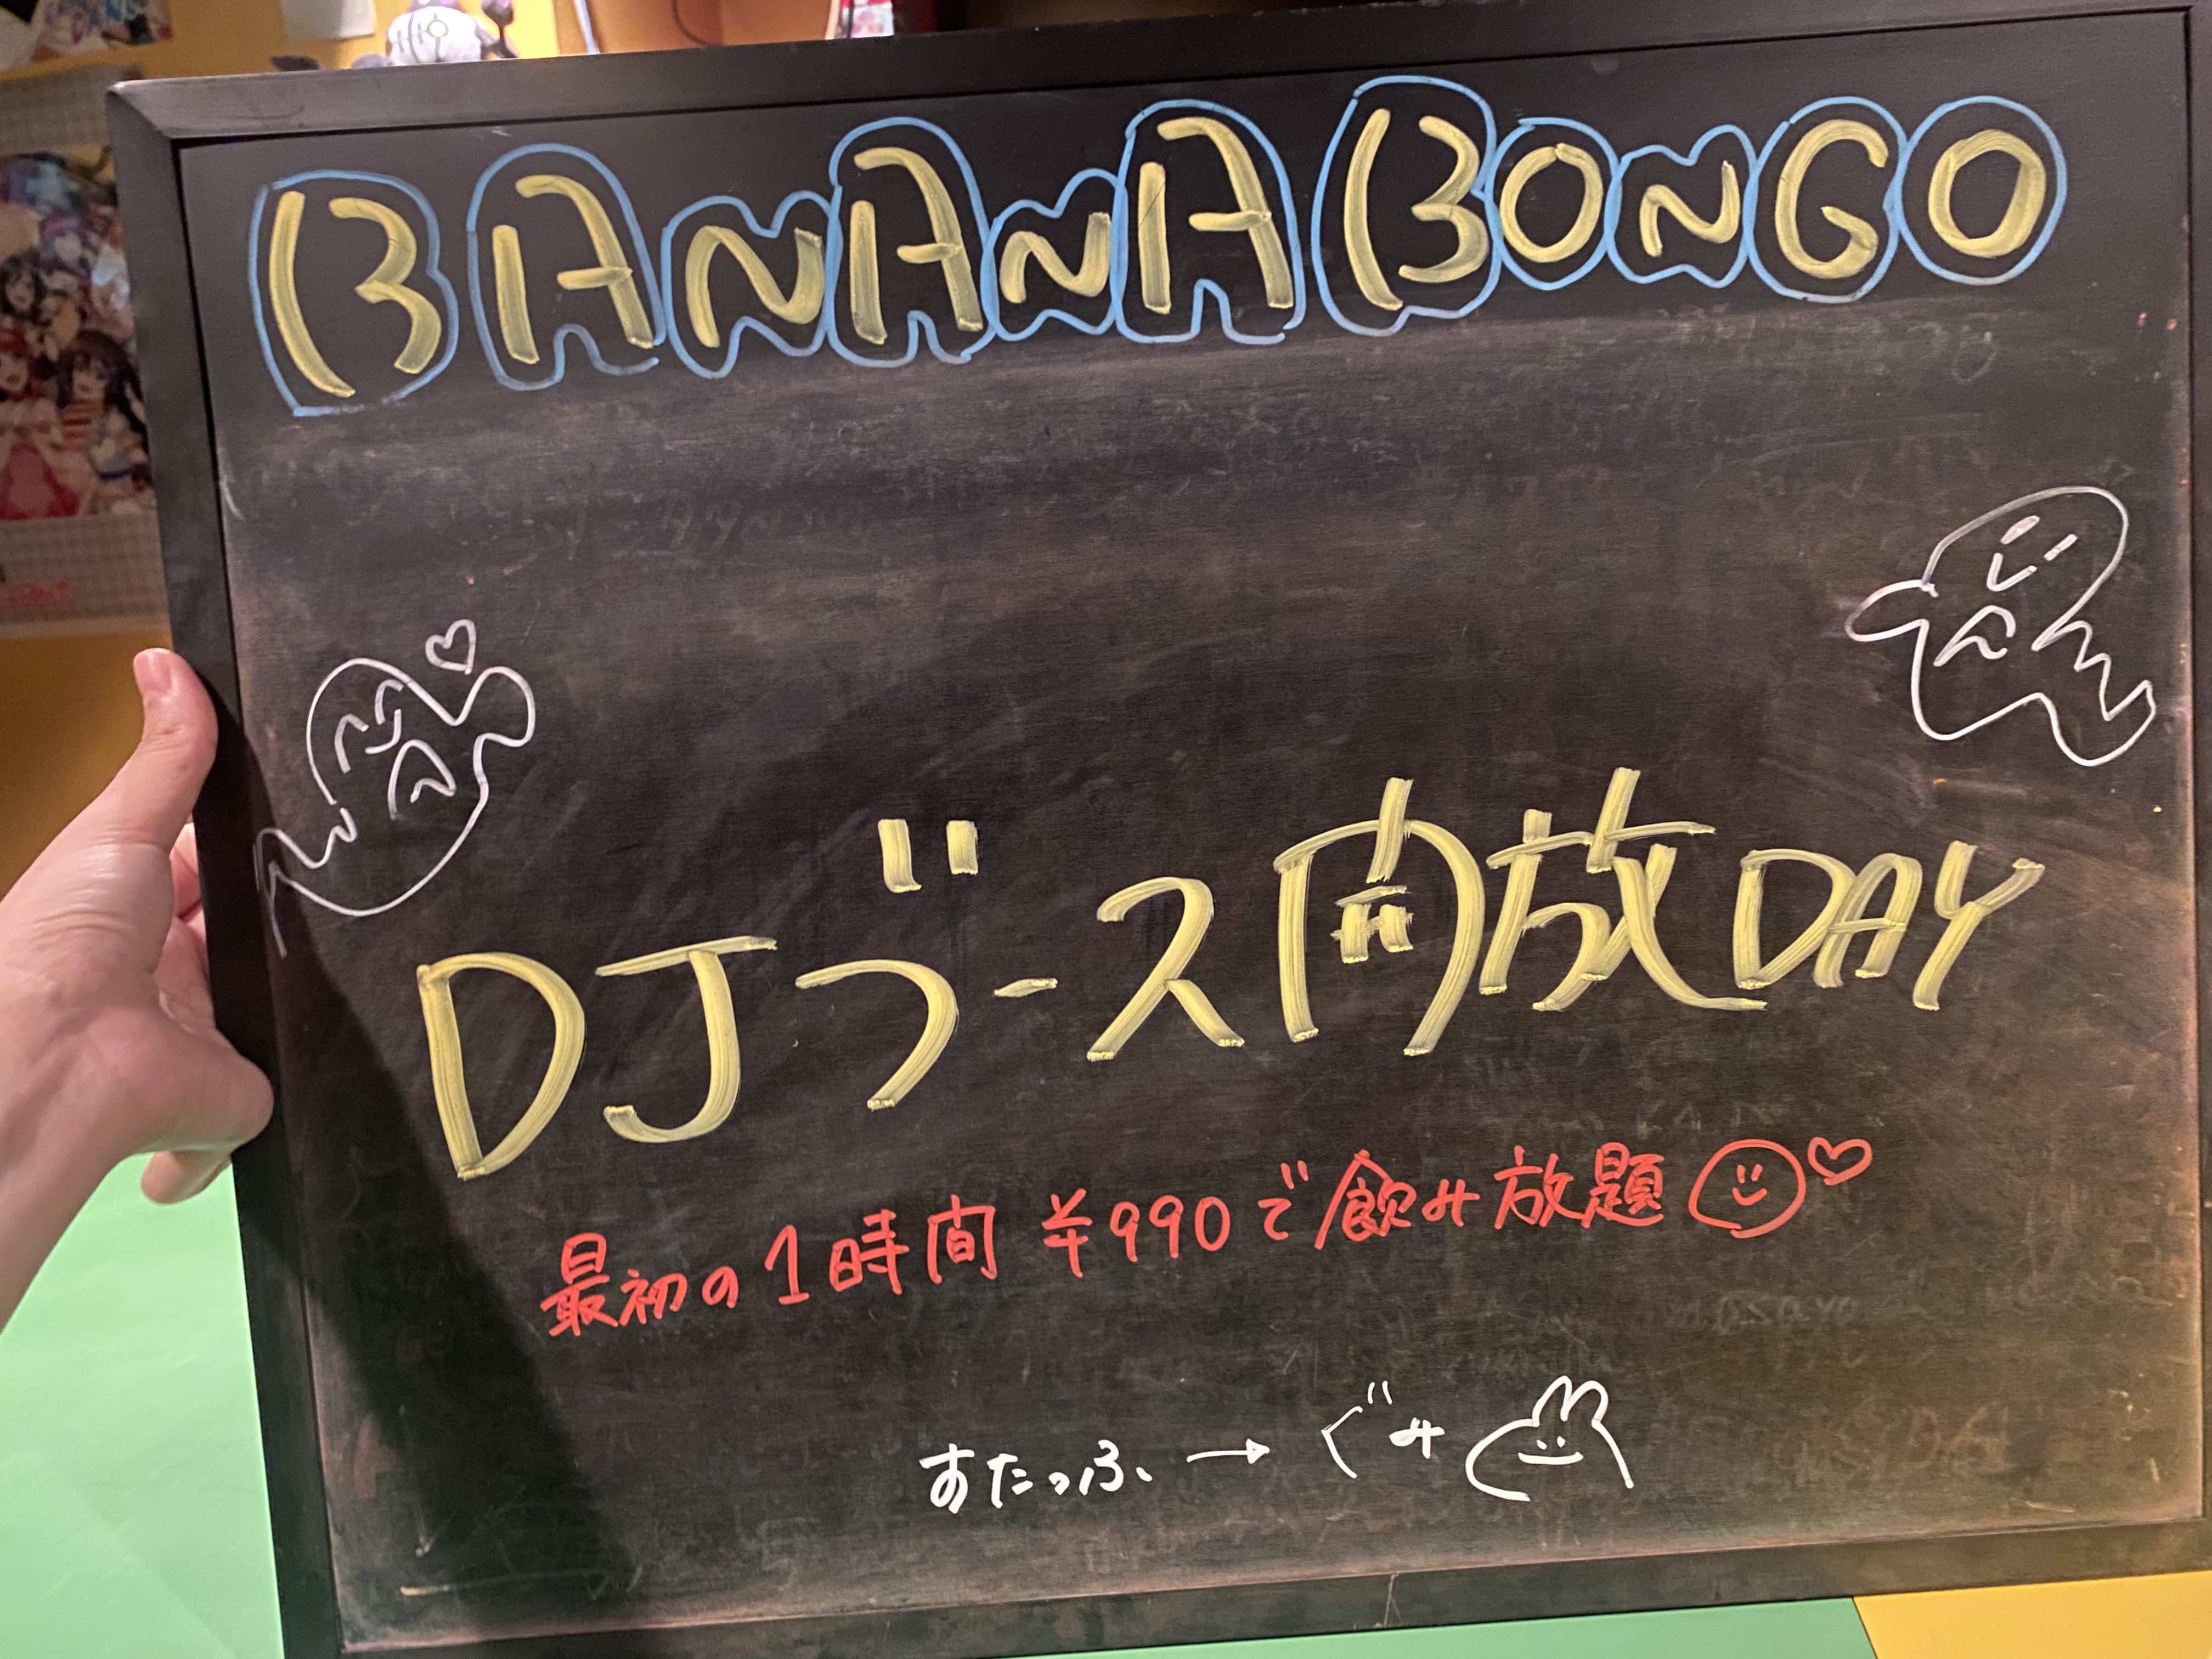 BANANA BONGO
DJブース開放DAY
最初の1時間 ¥990で飲み放題
すたっふ、→ ぐみ